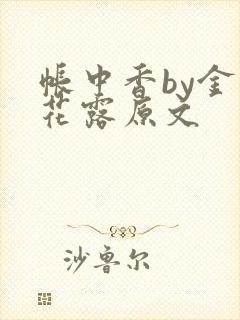 帐中香by金
花露原文
沙鲁尔